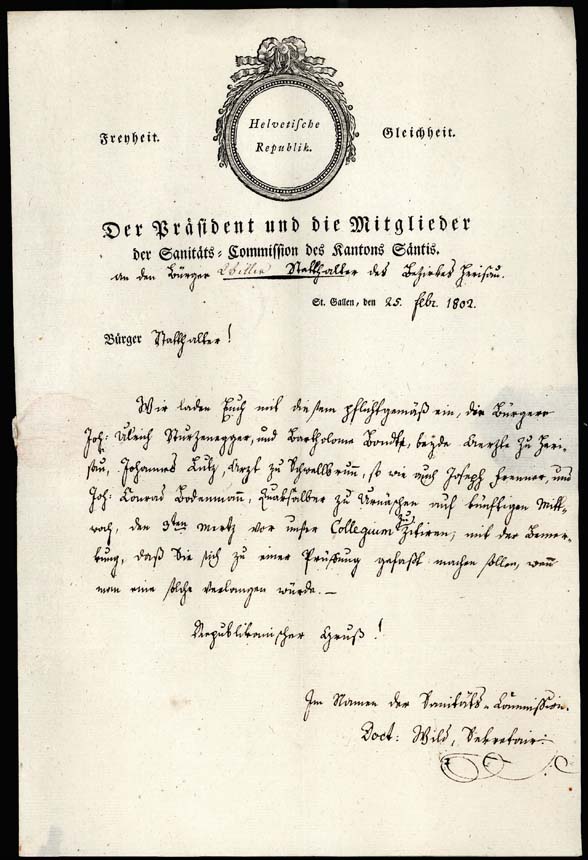 Freyheit.
Helvetische
Republik.
Gleichheit.
Der Präsident und die Mitglieder
der Sanitäts-Commission des Kantons Säntis.
an den Bürger Statthalter des Bezirkes Herisau.
St. Gallen, den 25. febr. 1802.
Bürger Statthalter!
Wir laden Euch mit diesem pflichtgemäß ein, die Bürgere
Joh: Ulrich Sturzenegger, und Bartholome beyde Aerzte zu Heri-
sau, Johannes Lutz, Arzt zu Schwellbrunn, so wie auch Joseph und
Joh: Conrad Bodenmann, Quaksalber zu Urnäschen auf künftigen Mitt-
woch, den 3ten Mertz vor unser Collegium zu Zitiren, mit der Bemer-
kung, daß Sie sich zu einer Prüffung gefaßt machen sollen, wenn
man eine solche verlangen würde. –
Republikanischer Gruß!
Im Namen der Sanitäts-Commission.
Doct: Wild, Sekretair.